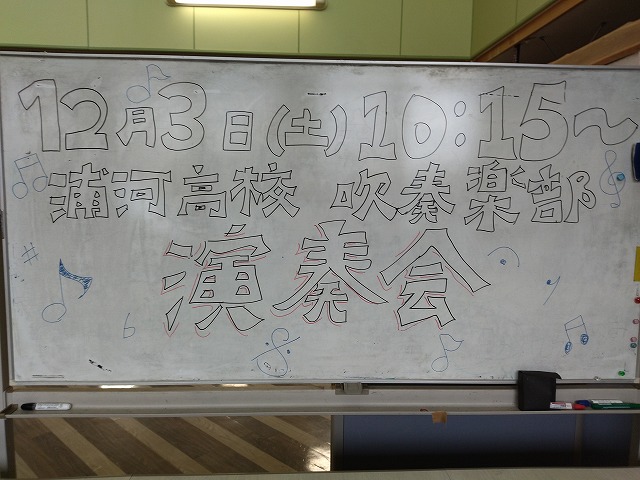 12月3日(土)10:15～
浦河高校 吹奏楽部
演奏会